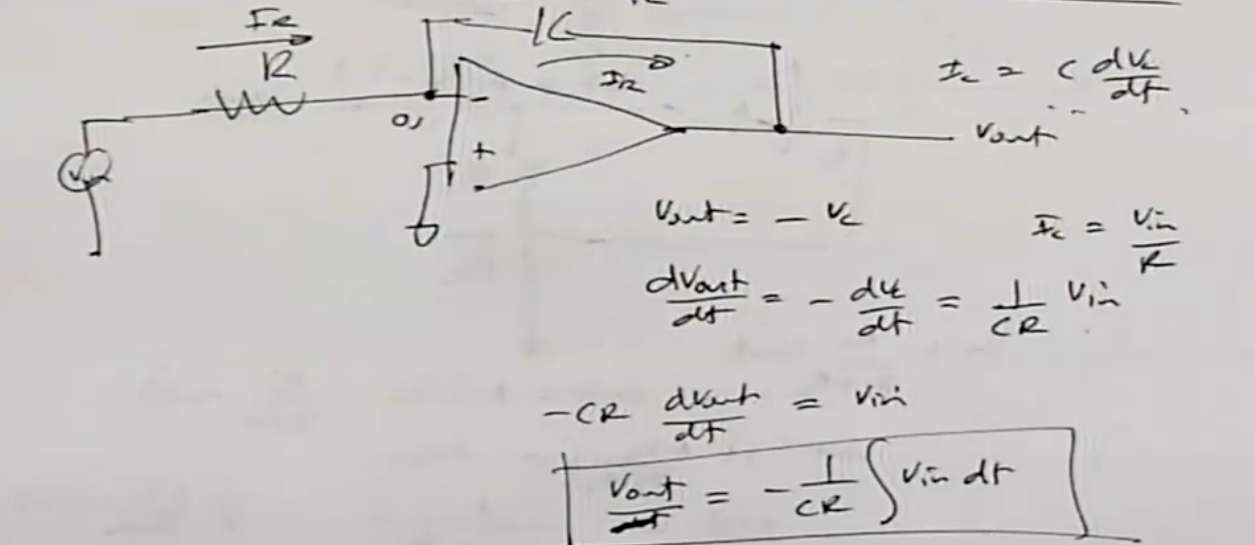 I_R
R
C
I_R
I_c = C dV_c/dt
0V
-
+
Vin
Vout
Vout = - Vc
I_c = Vin/R
dVout/dt = - dVc/dt = 1/CR Vin
-CR dVout/dt = Vin
Vout = - 1/CR ∫ Vin dt